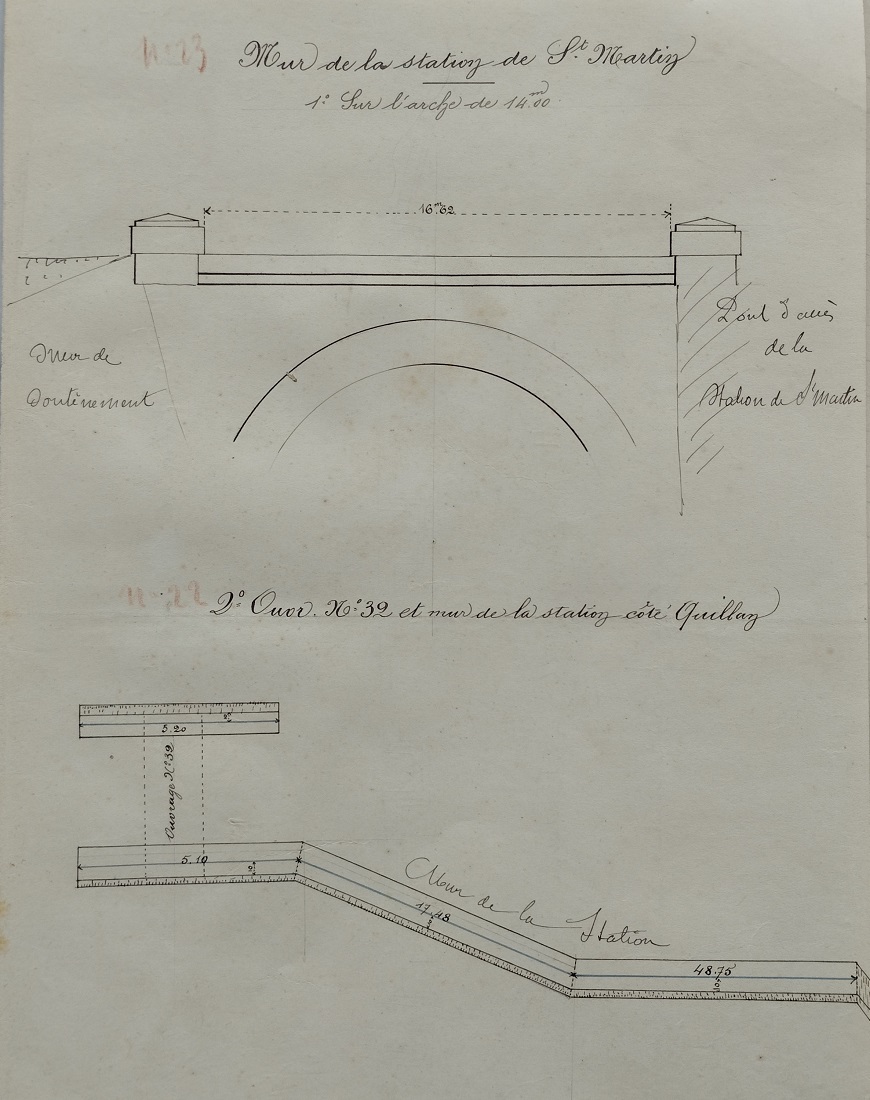 N° 23
Mur de la station de St. Martin
1° Sur l'arche de 14.m00
16.m62
Mur de
Soutènement
Pont d'accès
de la
Station de St Martin
N° 22
2° Ouvr. N° 32 et mur de la station côté Quillan
5.20
Ouvrage N° 32
5.10
Mur de la Station
17.48
48.75